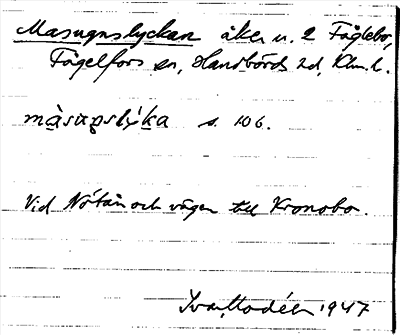 Masugnslyckan åker n. 2 Fåglebo,
Fågelfors sn, Handbörds hd, Klm. l.
màsuŋslýka s. 106.
Vid Nötån och vägen till Kronobo.
Ivar Modéer 1947